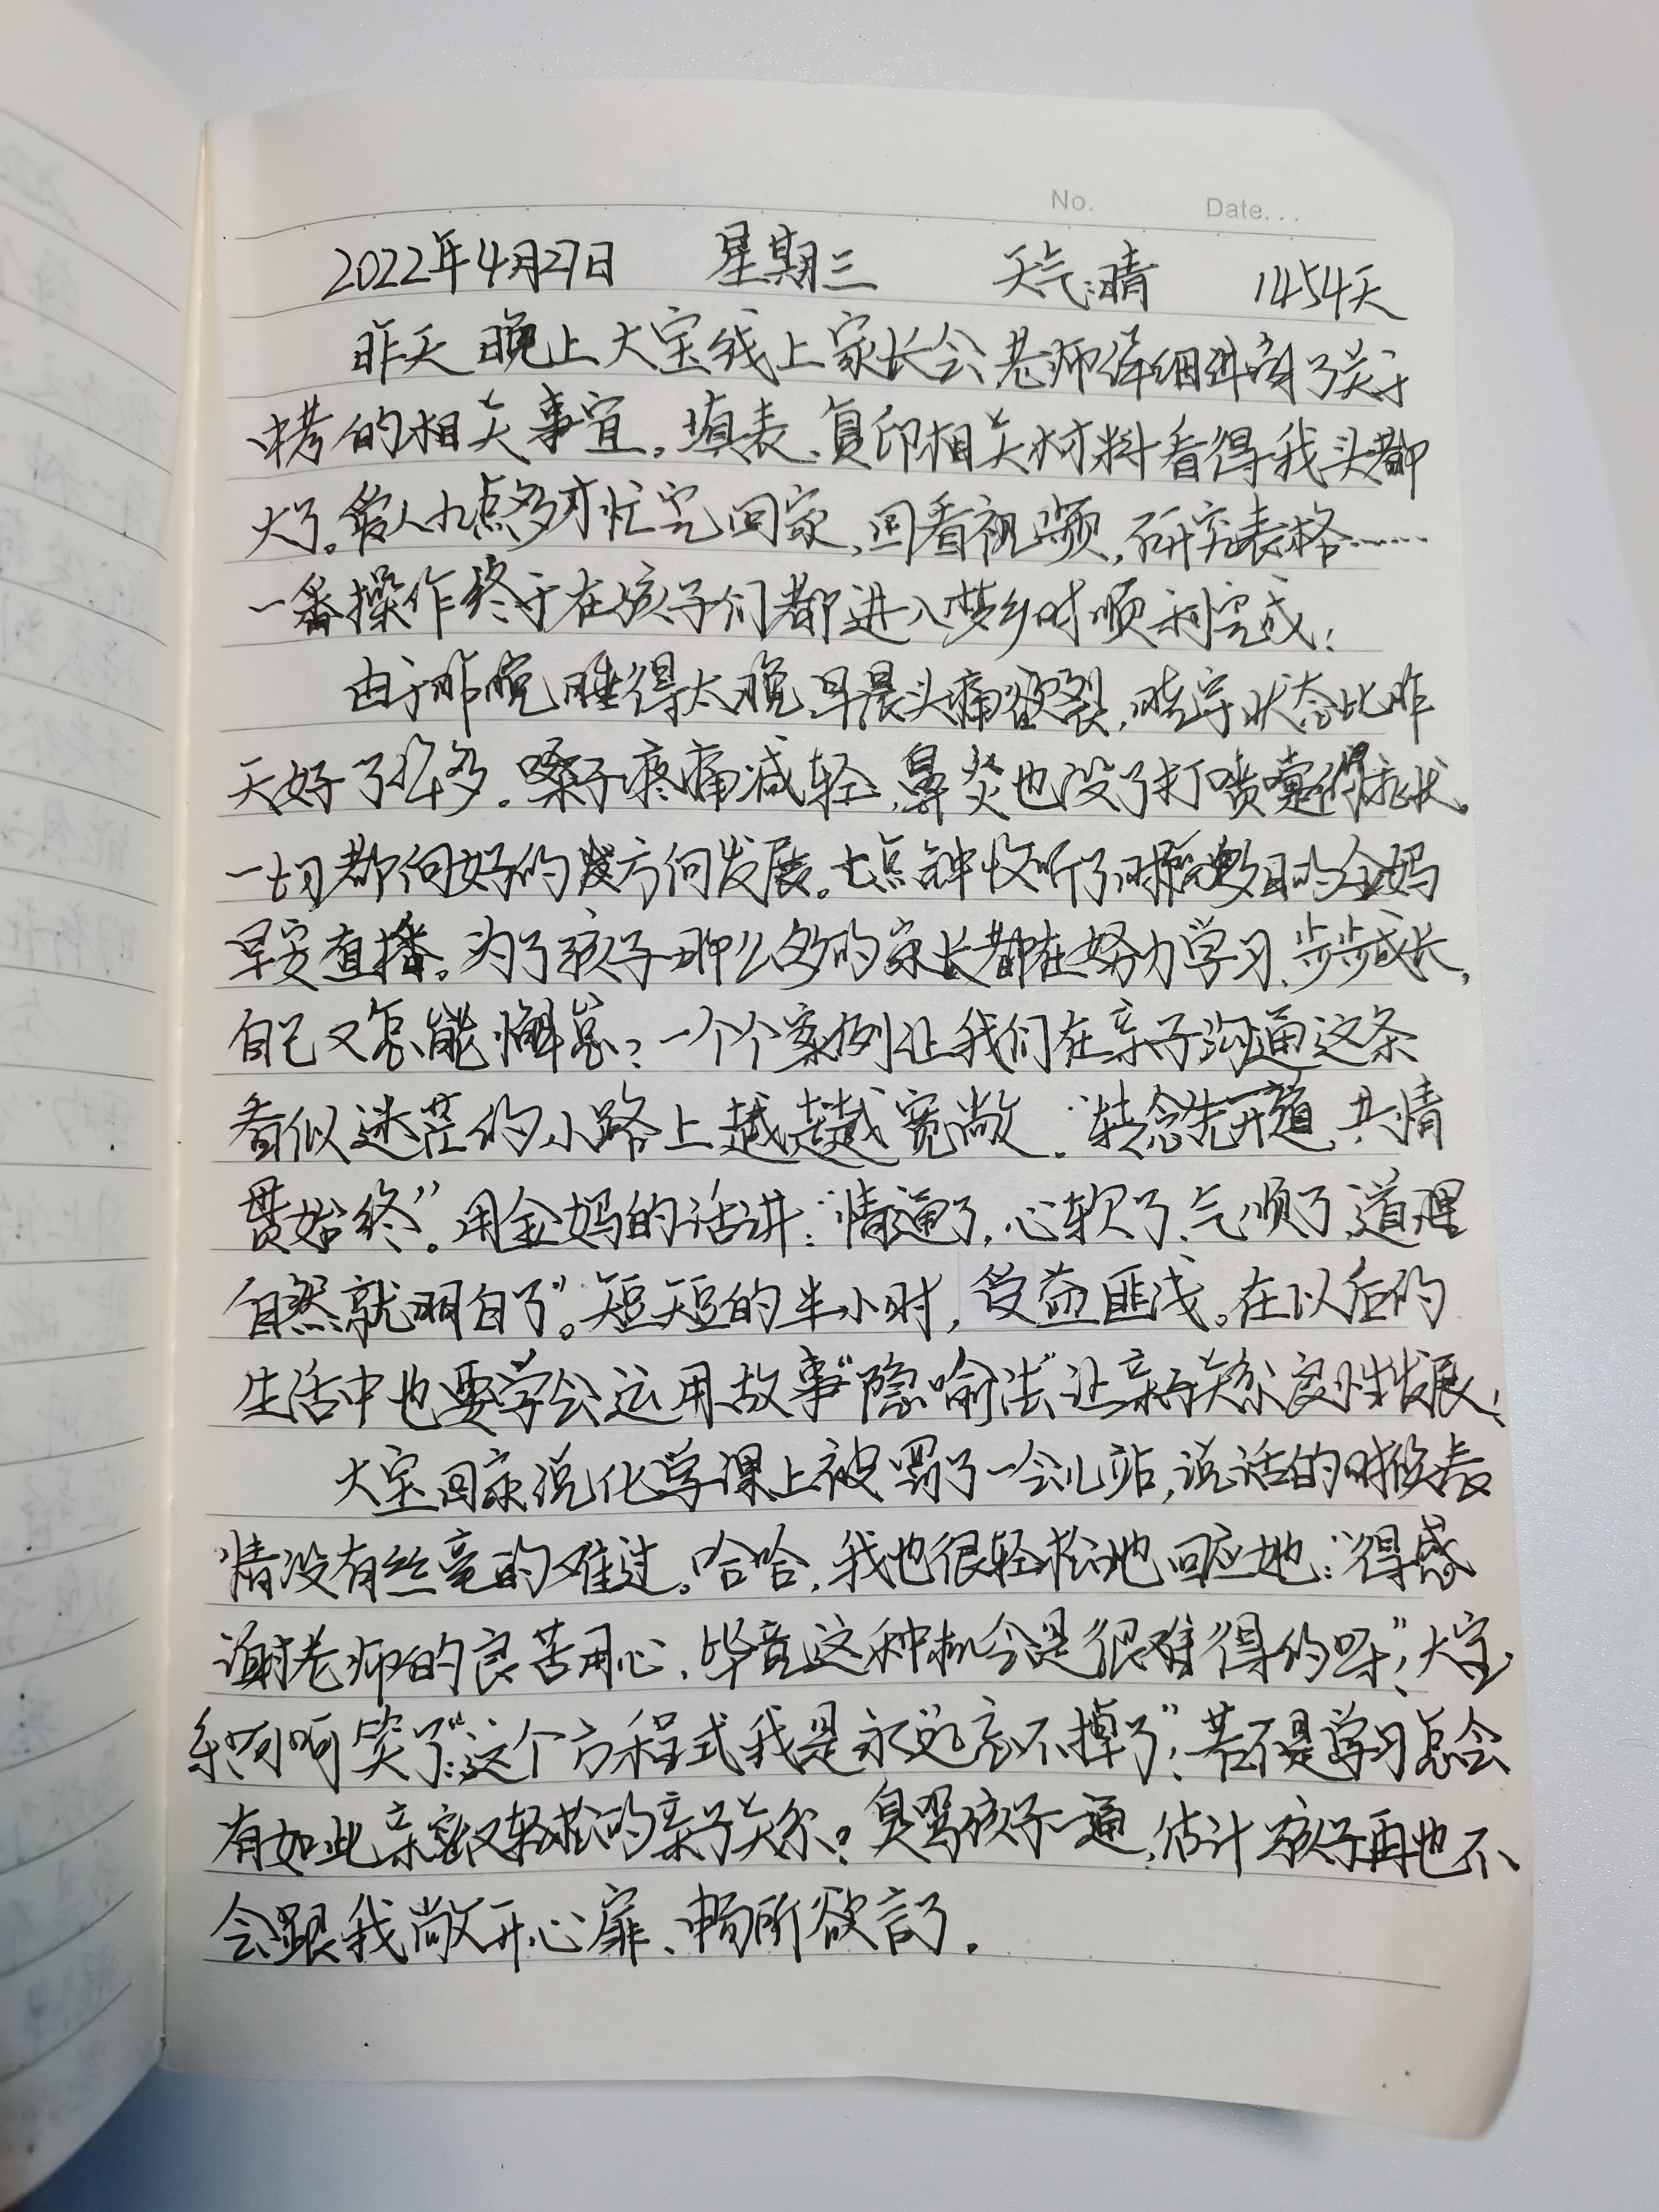 No. Date...
2022年4月27日 星期三 天气:晴 1454天
昨天晚上大宝线上家长会,老师详细讲解了关于
中考的相关事宜。填表、复印相关材料看得我头都
大了。等人九点多才忙完回家,回看视频,研究表格……
一番操作终于在孩子们都进入梦乡时顺利完成!
由于昨晚睡得太晚,早晨头痛欲裂,嗓字状态比昨
天好了很多。嗓子疼痛减轻,鼻炎也没了打喷嚏得症状。
一切都向好的方向发展。七点钟收听了期盼数日的金妈
早安直播。为了孩子那么多的家长都在努力学习、步步成长,
自己又怎能懈怠?一个个案例让我们在亲子沟通这条
看似迷茫的小路上越走越宽敞。“转念先开道,共情
贯始终”。用金妈的话讲:“情通了,心软了、气顺了,道理
自然就明白了”。短短的半小时,受益匪浅。在以后的
生活中也要学会运用故事“隐喻法”让亲子关系良性发展!
大宝回家说化学课上被罚了一会儿站,说话的时候表
情没有丝毫的难过。哈哈,我也很轻松地回应她:“得感
谢老师的良苦用心,毕竟这种机会是很难得的呀!”大宝
乐呵呵笑了:“这个方程式我是永远忘不掉了”!若不是学习怎会
有如此亲密又轻松的亲子关系?臭骂孩子一通,估计孩子再也不
会跟我敞开心扉、畅所欲言了。